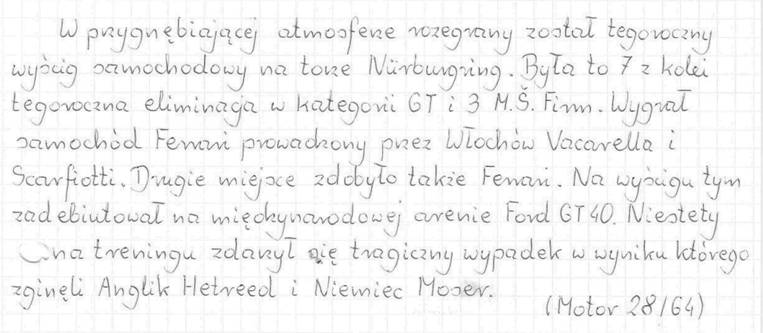 W przygnębiającej atmosferze rozegrany został tegoroczny
wyścig samochodowy na torze Nürburgring. Była to 7 z kolei
tegoroczna eliminacja w kategorii GT i 3 M.Š. Firm. Wygrał
samochód Ferrari prowadzony przez Włochów Vacarella i
Scarfiotti. Drugie miejsce zdobyło także Ferrari. Na wyścigu tym
zadebiutował na międzynarodowej arenie Ford GT40. Niestety
na treningu zdarzył się tragiczny wypadek w wyniku którego
zginęli Anglik Hetreed i Niemiec Moser.
(Motor 28/64)